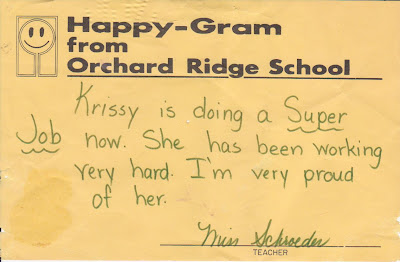 Happy-Gram
from
Orchard Ridge School
Krissy is doing a Super
Job now. She has been working
very hard. I'm very proud
of her.
Miss Schroeder
TEACHER